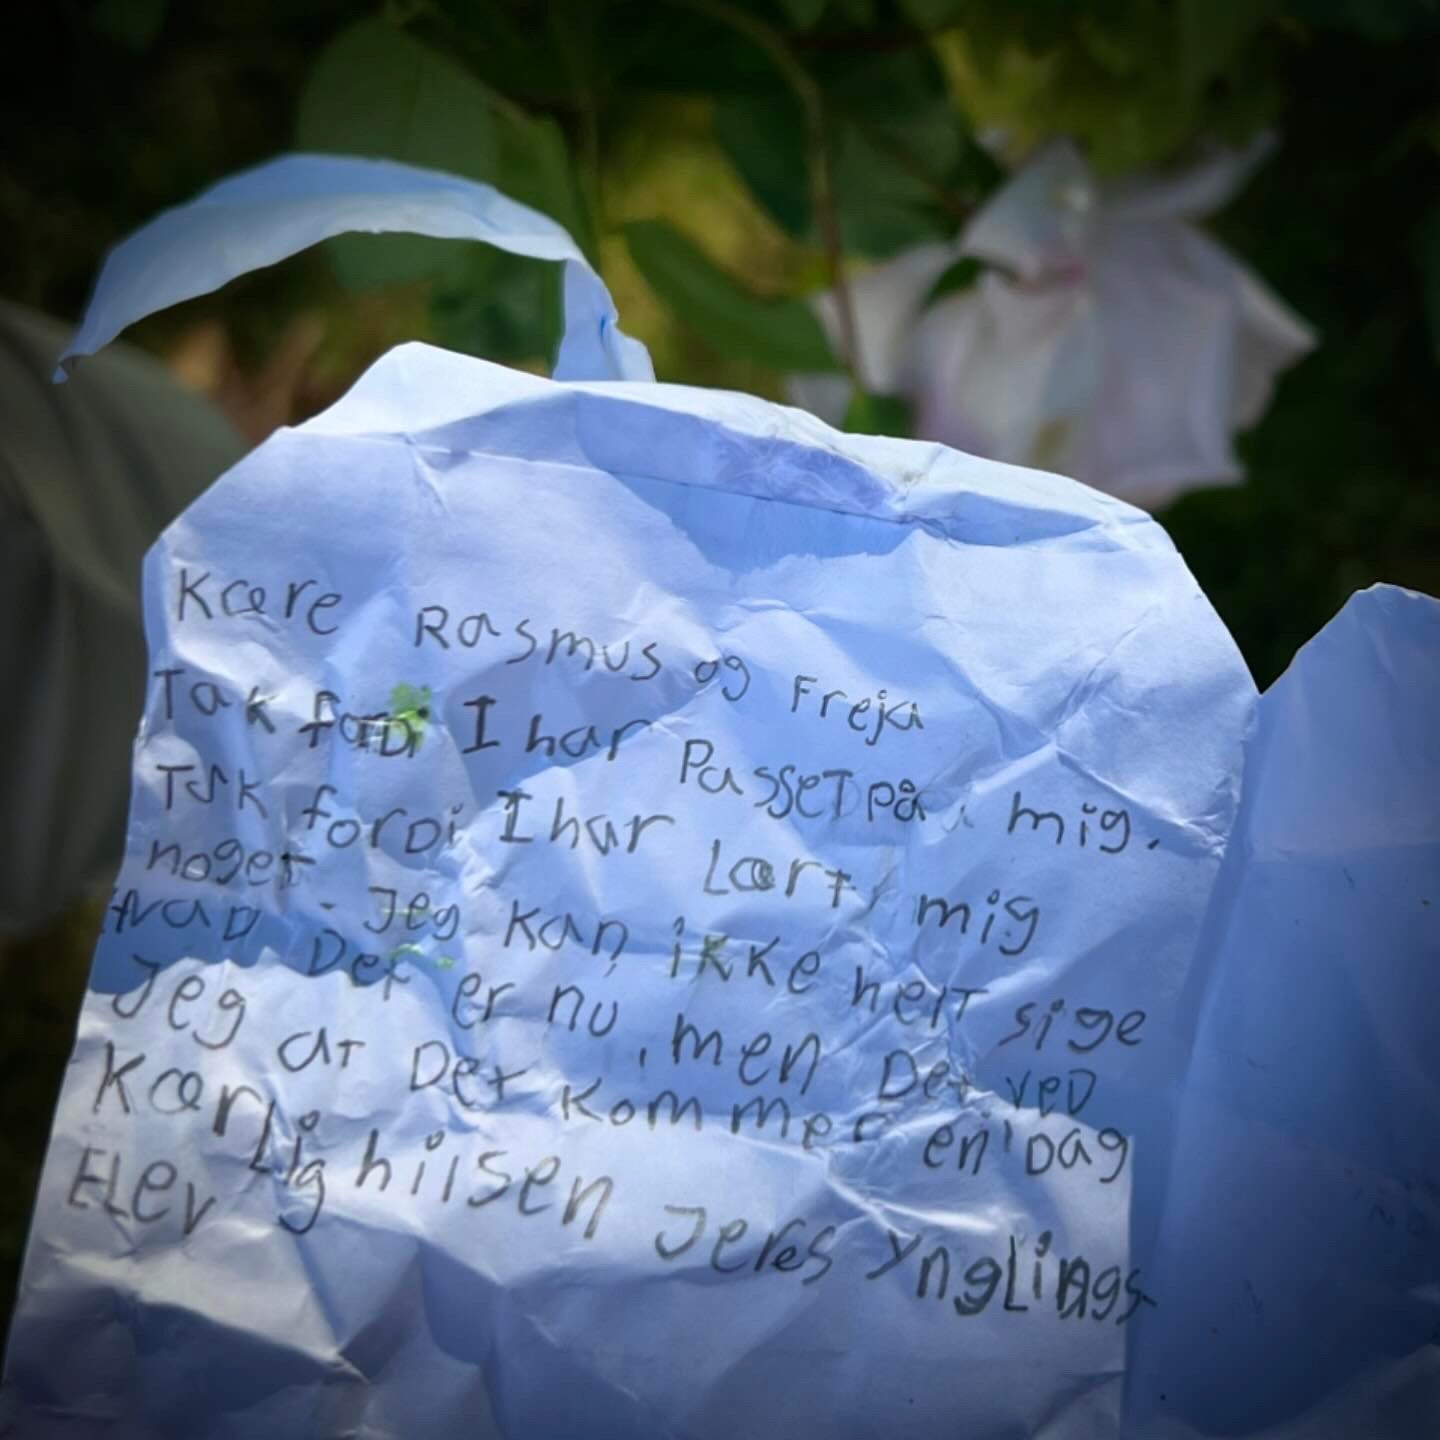 Kære Rasmus og Freja
Tak fordi I har PasseT på mig.
Tak forDi I har Lært mig
noget. Jeg kan ikke helt sige
hvaD Det er nu, men Det veD
Jeg at Det kommer en Dag
Kærlig hilsen Jeres ynglings-
ELev